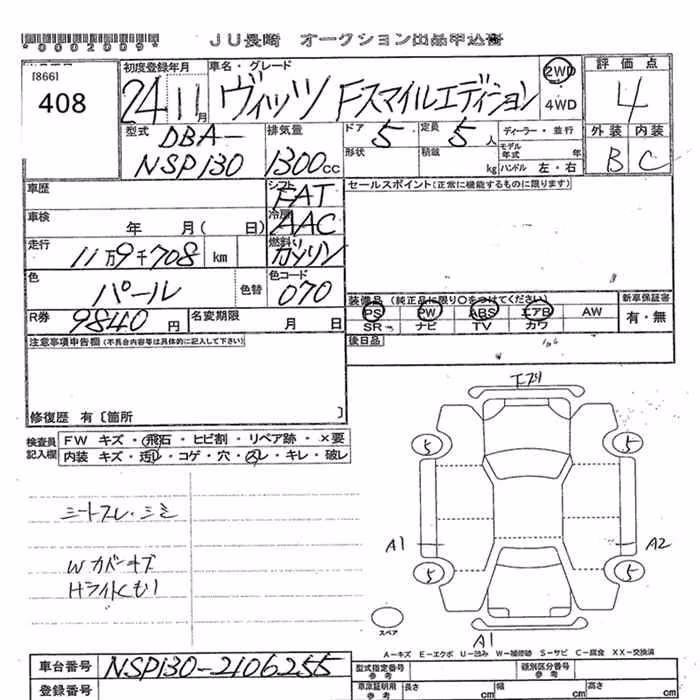 *0002009* JU長崎 オークション出品申込書
[866]
408
初度登録年月 車名・グレード
24 11月 ヴィッツ Fスマイルエディション 2WD 4WD
評価点
4
型式 DBA-NSP130
排気量 1300cc
ドア 5 定員 5人 ディーラー・並行
形状 積載 kg モデル年式 年 ハンドル 左・右
外装 内装
B C
車歴
シフト FAT
車検 年 月( 日)
冷房 AAC
走行 11万9千708km
燃料 ガソリン
色 パール 色替
色コード 070
R券 9840円 名変期限 月 日
セールスポイント(正常に機能するものに限ります)
装備品 (純正品に限り○をつけてください) 新車保証書
PS PW ABS エアB AW 有・無
SR ナビ TV カワ
後日品
注意事項申告欄(不具合内容等は具体的に記入して下さい)
修復歴 有〔箇所 〕
検査員記入欄
FW キズ・飛石・ヒビ割・リペア跡・×要
内装 キズ・汚レ・コゲ・穴・スレ・キレ・破レ
シートスレ・シミ
Wカバーキズ
Hライトくもり
エアリ
5 5
A1 A2
5 5
スペア
A1
A-キズ E-エクボ U-凹み W-補修跡 S-サビ C-腐食 XX-交換済
車台番号 NSP130-2106255
型式指定番号 参考 類別区分番号 参考
登録番号
車庫証明用 参考 長さ cm 幅 cm 高さ cm